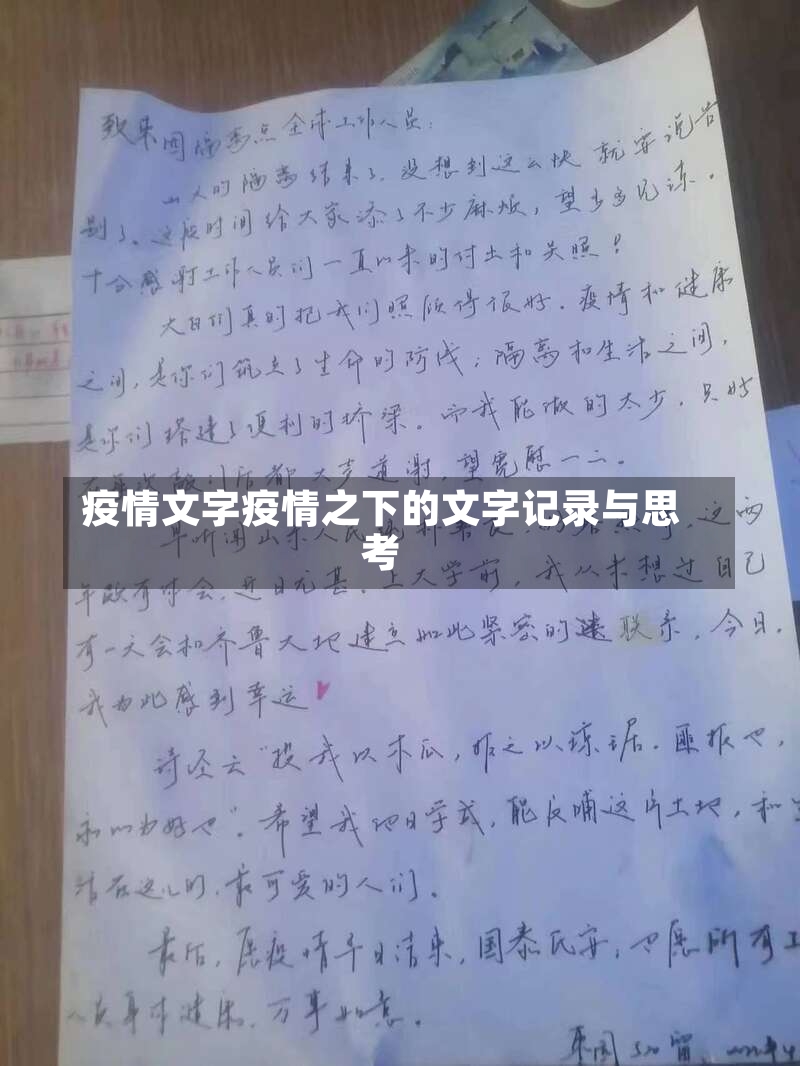 致东园隔离点全体工作人员：
山大的隔离结束了，没想到这么快就要说告
别了。这段时间给大家添了不少麻烦，望多多见谅。
十分感谢工作人员们一直以来的付出和关照！
大白们真的把我们照顾得很好．疫情和健康
之间，是你们筑立了生命的防线；隔离和生活之间，
是你们搭建了便利的桥梁。而我能做的太少，只好
后都大声道谢，望宽慰一二。
疫情文字疫情之下的文字记录与思
考
早听闻山东人民，这两
年略有体会，近日尤甚。上大学前，我从未想过自己
有一天会和齐鲁大地建立如此紧密的联系，今日，
我为此感到幸运
诗经云“投我以木瓜，报之以琼琚．匪报也，
永以为好也”。希望我他日学成，能反哺这片土地，和
活在这儿的，最可爱的人们。
最后，愿疫情早日结束，国泰民安，也愿所有工
人员身体健康，万事如意。
东园 520 留